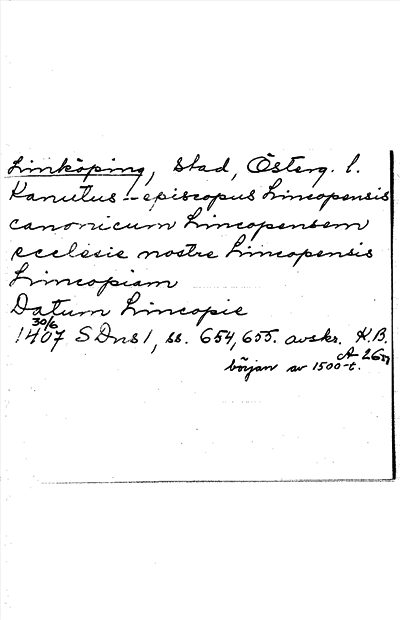 Linköping, stad, Österg. l.
Kanutus -- episcopus Lincopensis
canonicum Lincopensem
ecclesie nostre Lincopensis
Lincopiam
Datum Lincopie
30/6
1407 SDns 1, ss. 654, 655. avskr. K.B.
A 26
början av 1500-t.